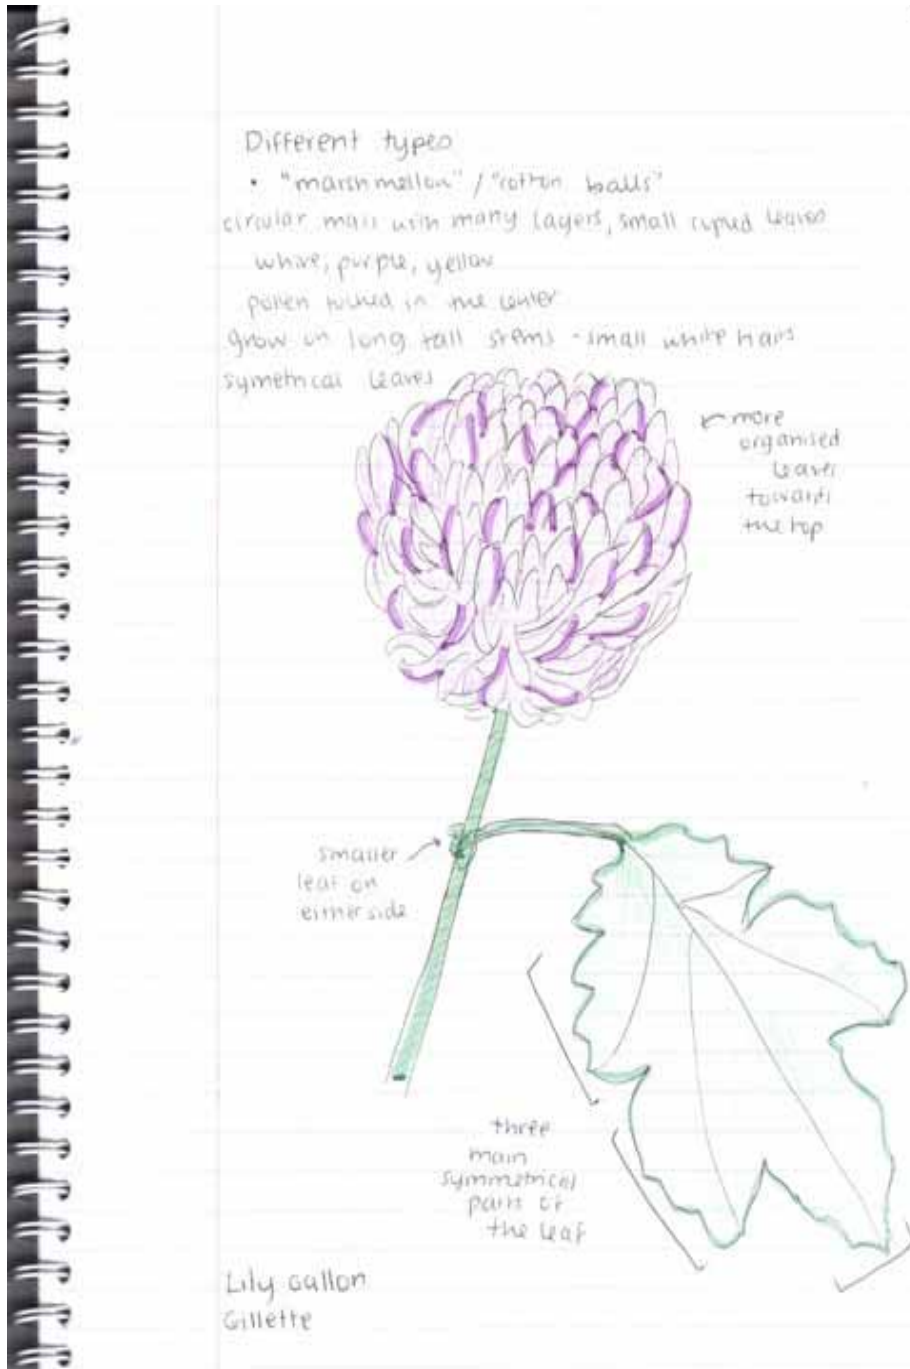 Different types
• "marshmellow" / "cotton balls"
circular mass with many layers, small cuped leaves
white, purple, yellow
pollen tucked in the center
grow on long tall stems - small white hairs
symetrical leaves
more
organised
leaves
towards
the top
smaller
leaf on
either side
three
main
symmetrical
parts of
the leaf
Lily Gallon
Gillette